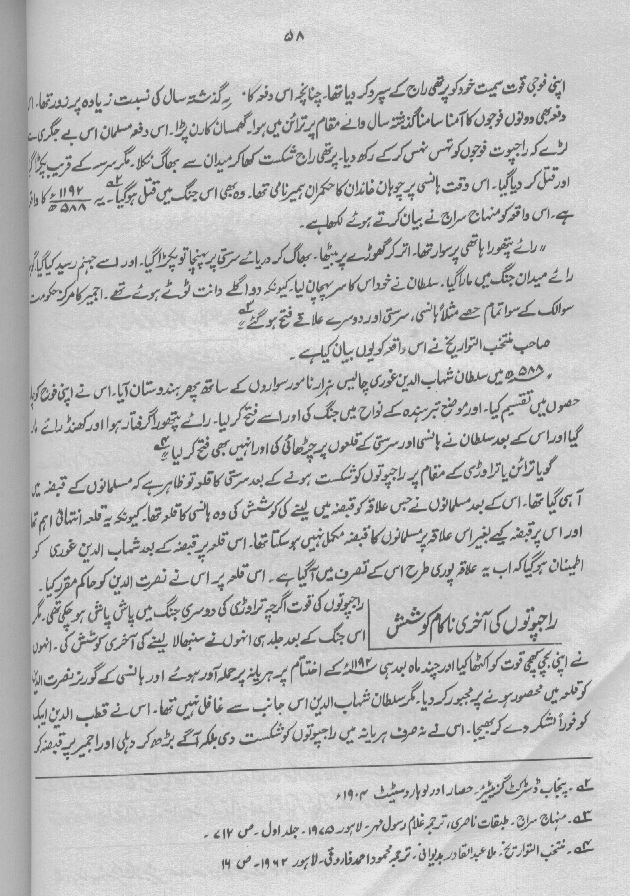 ۵۸
اپنی فوجی قوت سمیت خود کو پرتھی راج کے سپرد کر دیا تھا۔ چنانچہ اس دفعہ کا گذشتہ سال کی نسبت زیادہ پر زور تھا۔
دفعہ بھی دونوں فوجوں کا آمنا سامنا گذشتہ سال والے مقام پر تراین میں ہوا۔ گھمسان کا رن پڑا۔ اس دفعہ مسلمان اس بے جگری سے
لڑے کہ راجپوت فوجوں کو تہس نہس کر کے رکھ دیا۔ پرتھی راج شکست کھا کر میدان سے بھاگ نکلا۔ مگر سرسہ کے قریب پکڑا گیا
اور قتل کر دیا گیا۔ اس وقت ہانسی پر چوہان خاندان کا حکمران ہمیر نامی تھا۔ وہ بھی اس جنگ میں قتل ہو گیا۔ ؎۲ یہ ۱۱۹۲ء ۵۸۸ھ کا واقعہ
ہے۔ اس واقعہ کو منہاج سراج نے بیان کرتے ہوئے لکھا ہے۔
"رائے پتھورا ہاتھی پر سوار تھا۔ اتر کر گھوڑے پر بیٹھا۔ بھاگ کر دریائے سرستی پر پہنچا تو پکڑا گیا۔ اور اسے جہنم رسید کیا گیا۔
رائے میدان جنگ میں مارا گیا۔ سلطان نے خود اس کا سر پہچان لیا۔ کیونکہ دو اگلے دانت ٹوٹے ہوئے تھے۔ اجمیر کا مرکز حکومت
سوالک کے سوا تمام حصے مثلاً ہانسی، سرستی اور دوسرے علاقے فتح ہو گئے ؎۳
صاحب منتخب التواریخ نے اس واقعہ کو یوں بیان کیا ہے۔
"۵۸۸ھ میں سلطان شہاب الدین غوری چالیس ہزار نامور سواروں کے ساتھ پھر ہندوستان آیا۔ اس نے اپنی فوج کو چار
حصوں میں تقسیم کیا۔ اور موضع تبرہندہ کے نواح میں جنگ کی اور اسے فتح کر لیا۔ رائے پتھورا گرفتار ہوا اور کھنڈ رائے مارا
گیا اور اس کے بعد سلطان نے ہانسی اور سرستی کے قلعوں پر چڑھائی کی اور انہیں بھی فتح کر لیا ؎۴
گویا تراین یا تراوڑی کے مقام پر راجپوتوں کو شکست ہونے کے بعد سرستی کا قلعہ تو ظاہر ہے کہ مسلمانوں کے قبضہ میں
آ ہی گیا تھا۔ اس کے بعد مسلمانوں نے جس علاقہ کو قبضہ میں لینے کی کوشش کی وہ ہانسی کا قلعہ تھا۔ کیونکہ یہ قلعہ انتہائی اہم تھا
اور اس پر قبضہ کیے بغیر اس علاقہ پر مسلمانوں کا قبضہ مکمل نہیں ہو سکتا تھا۔ اس قلعہ پر قبضہ کے بعد شہاب الدین غوری کو
اطمینان ہو گیا کہ اب یہ علاقہ پوری طرح اس کے تصرف میں آ گیا ہے۔ اس قلعہ پر اس نے نصرت الدین کو حاکم مقرر کیا۔
راجپوتوں کی آخری ناکام کوشش
راجپوتوں کی قوت اگرچہ تراوڑی کی دوسری جنگ میں پاش پاش ہو چکی تھی۔ مگر
اس جنگ کے بعد جلد ہی انہوں نے سنبھالا لینے کی آخری کوشش کی۔ انہوں
نے اپنی بچی کھچی قوت کو اکٹھا کیا اور چند ماہ بعد ہی ۱۱۹۲ء کے اختتام پر ہریانہ پر حملہ آور ہوئے اور ہانسی کے گورنر نصرت الدین
کو قلعہ میں محصور ہونے پر مجبور کر دیا۔ مگر سلطان شہاب الدین اس جانب سے غافل نہیں تھا۔ اس نے قطب الدین ایبک
کو فوراً لشکر دے کر بھیجا۔ اس نے نہ صرف ہریانہ میں راجپوتوں کو شکست دی بلکہ آگے بڑھ کر دہلی اور اجمیر پر قبضہ کر
؎۲۔ پنجاب ڈسٹرکٹ گزیٹیر۔ حصار اور لوہارو سٹیٹ ۱۹۰۴ء
؎۳۔ منہاج سراج۔ طبقات ناصری، ترجمہ غلام رسول مہر۔ لاہور ۱۹۷۵۔ جلد اول۔ ص ۷۱۲۔
؎۴۔ منتخب التواریخ۔ ملا عبدالقادر بدایونی۔ ترجمہ محمود احمد فاروقی۔ لاہور ۱۹۶۲۔ ص ۱۶